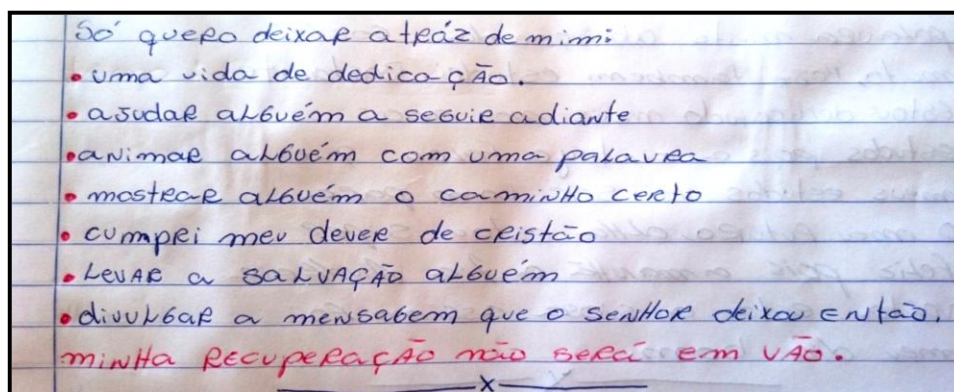 Só quero deixar atráz de mim:
• uma vida de dedica-ção.
• ajudar alguém a seguir adiante
• animar alguém com uma palavra
• mostrar alguém o caminho certo
• cumpri meu dever de cristão
• Levar a salvação alguém
• divulgar a mensagem que o senhor deixou então,
minha recuperação não será em vão.
x